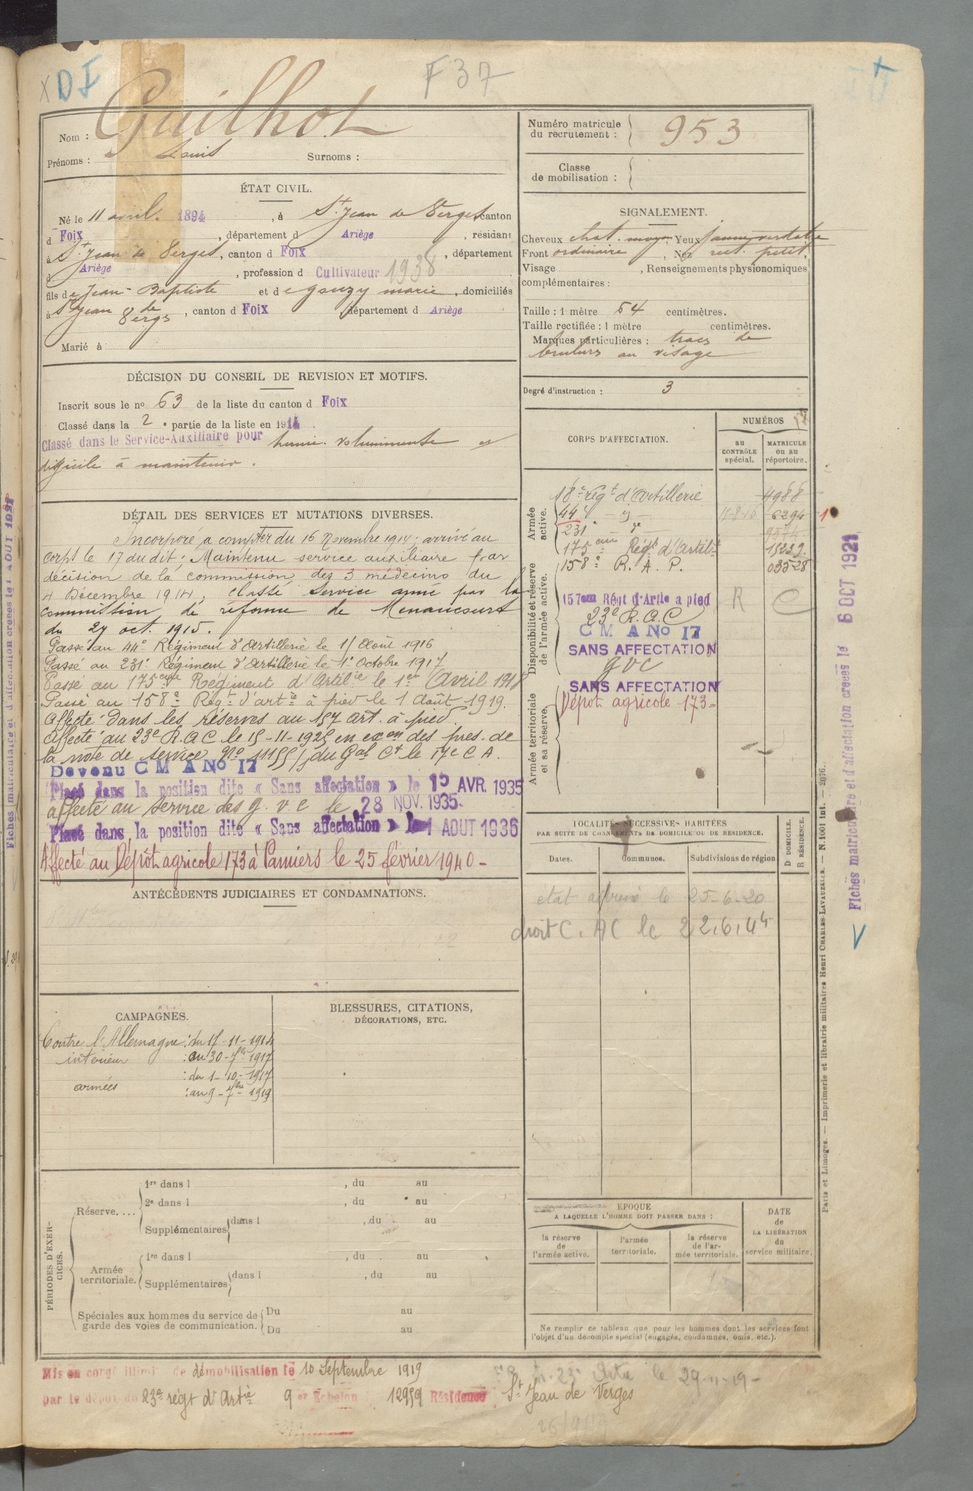 X DF
F 37
Nom : Guilhot
Prénoms : Louis Surnoms :
ÉTAT CIVIL.
Né le 11 avril 1894, à St Jean de Verges canton
d Foix, département d Ariège, résidant
à St Jean de Verges, canton d Foix, département
Ariège, profession d Cultivateur 1938
fils de Jean-Baptiste et de Gouzy marie, domiciliés
à St Jean de Vergs, canton d Foix département d Ariège
Marié à
DÉCISION DU CONSEIL DE REVISION ET MOTIFS.
Inscrit sous le no 63 de la liste du canton d Foix
Classé dans la 2e partie de la liste en 1914.
Classé dans le Service-Auxiliaire pour hernie volumineuse et
difficile à maintenir.
DÉTAIL DES SERVICES ET MUTATIONS DIVERSES.
Incorporé à compter du 16 Novembre 1914; arrivé au
corps le 17 du dit; Maintenu service auxiliaire par
décision de la commission des 3 médecins du
4 Décembre 1914; Classé service armé par la
commission de réforme de Menaucourt
du 27 oct. 1915.
Passé au 44e Régiment d'Artillerie le 11 Août 1916
Passé au 231e Régiment d'Artillerie le 1er Octobre 1917
Passé au 175eme Régiment d'Artilie le 1er Avril 1918
Passé au 158e Régt d'artie à pied le 1 Août 1919.
Affecté dans les réserves au 157 art. à pied.
Affecté au 23e R.A.C le 15-11-1928 en exon des pres. de
la note de service No 11155/1 du Gal Ct le 17e C A.
Devenu C M A No 17
Placé dans la position dite « Sans affectation » le 15 AVR. 1935
affecté au service des g. v c le 28 NOV. 1935.
Placé dans la position dite « Sans affectation » le 1 AOUT 1936
Affecté au Dépôt agricole 173 à Pamiers le 25 février 1940-
ANTÉCÉDENTS JUDICIAIRES ET CONDAMNATIONS.
CAMPAGNES.
Contre l'Allemagne : du 17-11-1914
intérieur : au 30-7bre 1917
: du 1-10-1917
armées : au 9-7bre 1919
BLESSURES, CITATIONS,
DÉCORATIONS, ETC.
PÉRIODES D'EXER-
CICES.
Réserve.... 1re dans l , du au
2e dans l , du au
Supplémentaires dans l , du au
Armée
territoriale. 1re dans l , du au
Supplémentaires dans l , du au
Spéciales aux hommes du service de
garde des voies de communication. Du au
Du au
Mis en congé illim. de démobilisation le 10 Septembre 1919
par le dépôt du 23e régt d'Artie 9e Echelon 12959 Résidence St Jean de Verges
le 29-11-19-
Numéro matricule
du recrutement : 953
Classe
de mobilisation :
SIGNALEMENT.
Cheveux chat. moyen Yeux jaune verdatre
Front ordinaire, Nez rect. petit,
Visage , Renseignements physionomiques
complémentaires :
Taille : 1 mètre 54 centimètres.
Taille rectifiée : 1 mètre centimètres.
Marques particulières : traces de
brulures au visage
Degré d'instruction : 3
CORPS D'AFFECTATION.
NUMÉROS
AU
CONTRÔLE
spécial.
MATRICULE
OU AU
répertoire.
Armée
active.
18e régt d'Artillerie 4988
44e - 6294
231e
175eme Régt d'Artil.
158e R. A. P.
Disponibilité et réserve
de l'armée active.
157eme Régt d'Artie à pied R
23e R.A.C
C M A No 17
SANS AFFECTATION
gvc
Armée territoriale
et sa réserve.
SANS AFFECTATION
Dépôt agricole 173-
LOCALITÉS SUCCESSIVES HABITÉES
PAR SUITE DE CHANGEMENTS DE DOMICILE OU DE RÉSIDENCE.
Dates. Communes. Subdivisions de région
D DOMICILE.
R RÉSIDENCE.
etat adressé le 25-6-20
droit C. AC le 22.6.44
EPOQUE
A LAQUELLE L'HOMME DOIT PASSER DANS :
DATE
DE
LA LIBÉRATION
du
service militaire.
la réserve
de
l'armée active.
l'armée
territoriale.
la réserve
de l'ar-
mée territoriale.
Ne remplir ce tableau que pour les hommes dont les services font
l'objet d'un décompte spécial (engagés, condamnés, omis, etc.).
Paris et Limoges. — Imprimerie et librairie militaires Henri CHARLES-LAVAUZELLE.
Fiches matricule et d'affectation creées le 6 OCT 1921